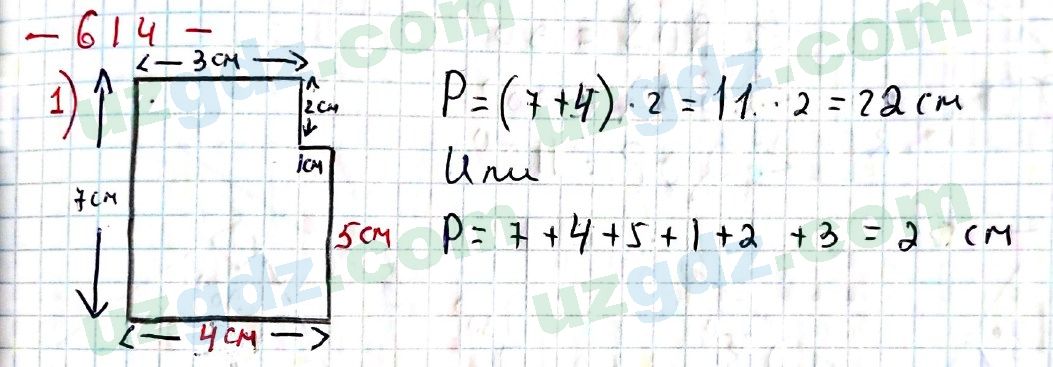 - 614 -
1)
3см
2см
1см
7см
5см
4см
P = (7+4) · 2 = 11 · 2 = 22 см
Или
P = 7 + 4 + 5 + 1 + 2 + 3 = 2 см
uzgdz.com
uzgdz.com
uzgdz.com
uzgdz.com